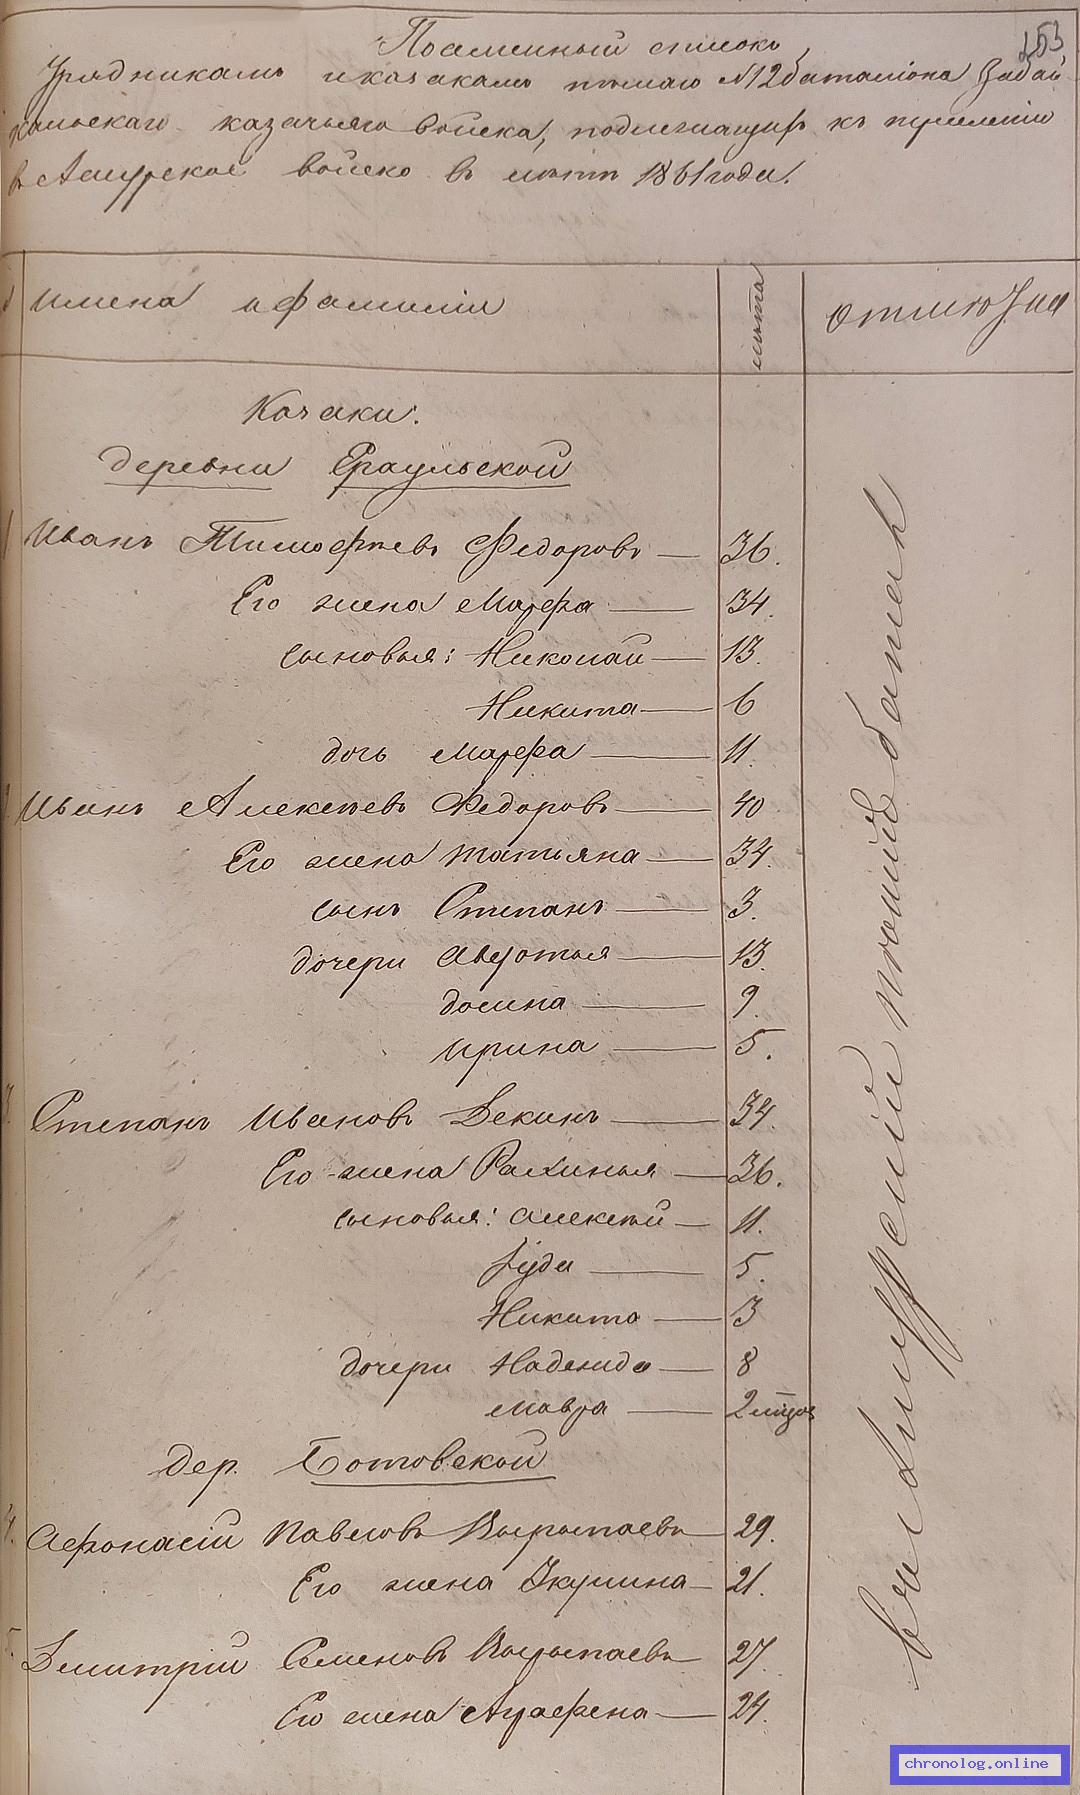 153
Поименный списокъ
Урядникамъ и козакамъ пѣшаго №12 баталіона Забай
кальскаго казачьяго войска, подлежащихъ къ
въ Амурское войско въ лѣто 1861 года.
Имена и фамиліи
лѣта
Козаки:
деревни Ераульской
1 Иванъ Тимофѣевъ Федоровъ — 36.
Его жена Марфа — 34.
сыновья: Николай — 13.
Никита — 6
дочь Марфа — 11.
Иванъ Алексѣевъ Федоровъ — 40
Его жена Татьяна — 34.
сынъ Степанъ — 3.
дочери Авдотья — 13.
домна — 9.
Ирина — 5.
3. Степанъ Ивановъ Декинъ — 34.
Его жена — 36.
сыновья: Алексѣй — 11.
Іуда — 5.
Никита — 3
дочери Надежда — 8
Мавра — 2
дер. Ботовской
4. Афонасій Павловъ Вырыпаевъ — 29.
Его жена Акулина — 21.
5. Дмитрій Семеновъ Вырыпаевъ — 27.
Его жена Аграфена — 24.
въ Амурскій пѣшій баталіонъ
chronolog.online